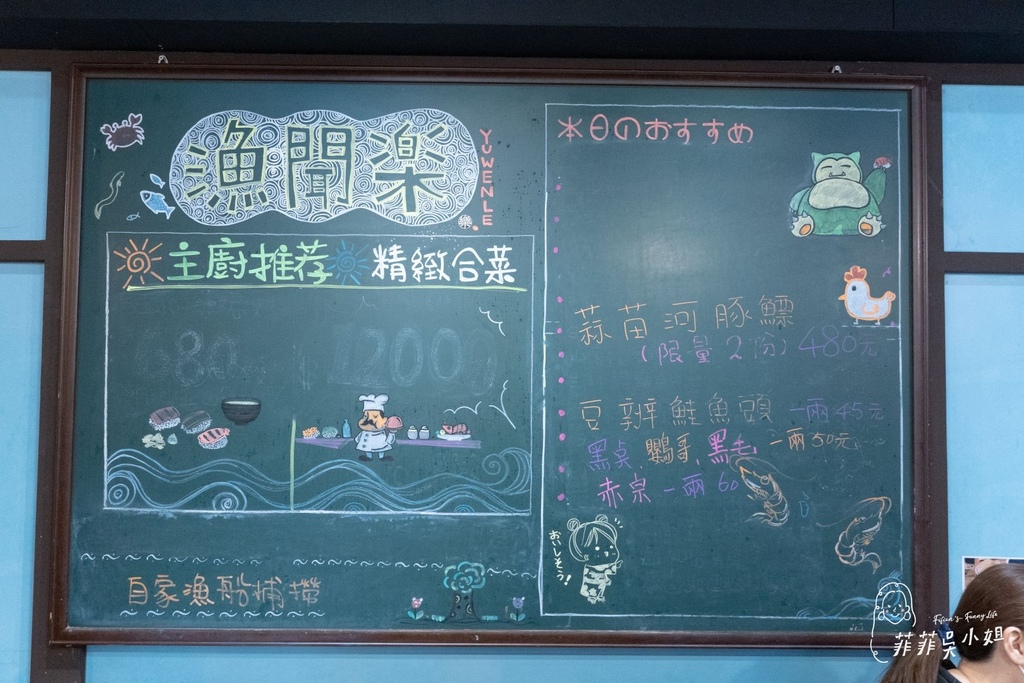 漁聞楽
YUWENLE
主廚推荐 精緻合菜
1200
自家漁船捕撈
本日のおすすめ
蒜苗河豚鰾
(限量2份) 480元
豆瓣鮭魚頭 一兩45元
黑点,鸚哥,黑毛 一兩50元
赤宗 一兩60
おいしそう!
Feifei's Funny Life
菲菲吳小姐